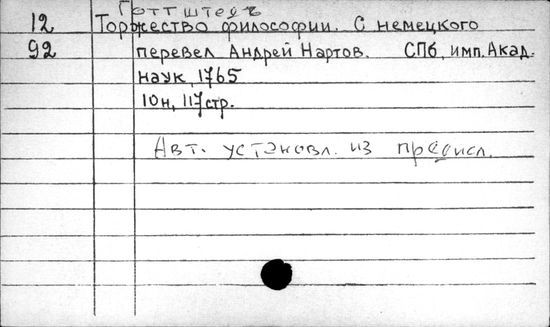 Готтштедъ
12 Торжество философии. С немецкого
92 перевел Андрей Нартов. СПб, имп. Акад.
наук, 1765
10н, 117стр.
Авт. установл. из предисл.